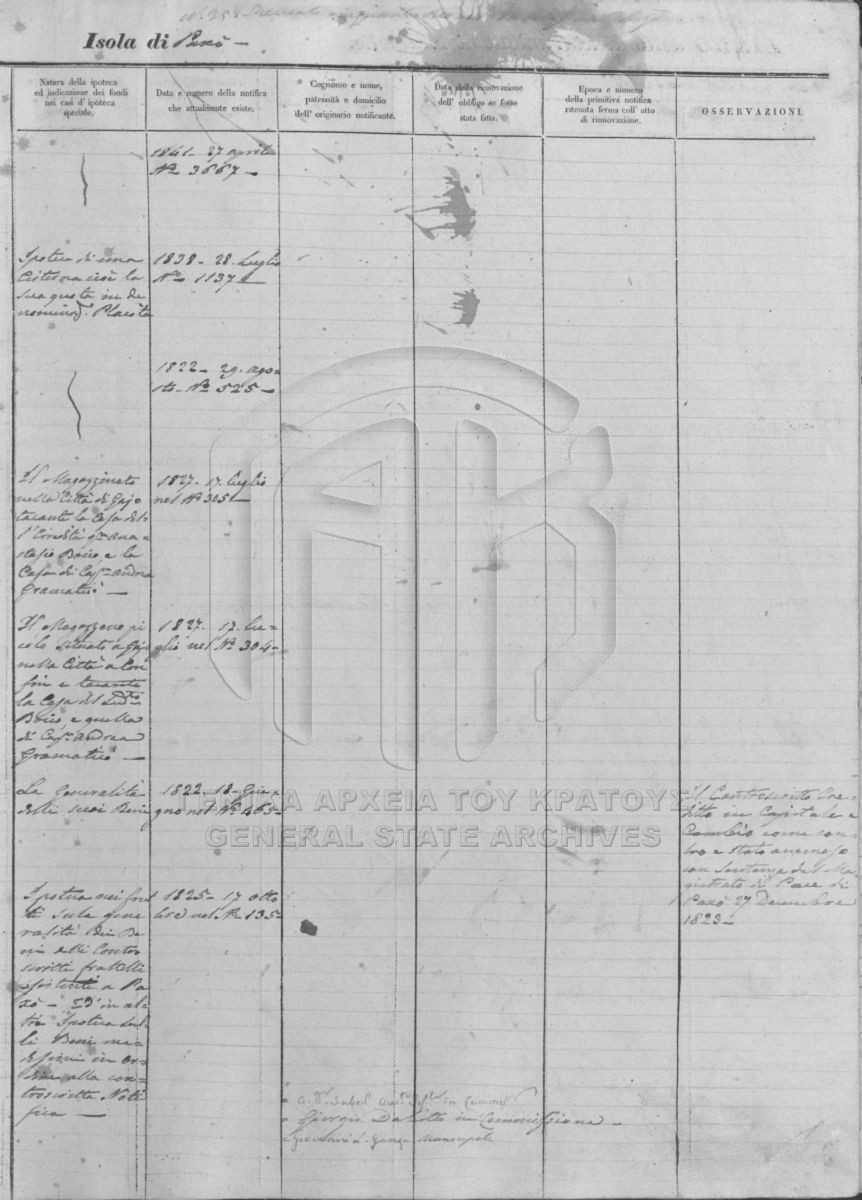 Isola di Paxò –
Natura della ipoteca
ed indicazione dei fondi
nei casi d' ipoteca
speciale.
Data e numero della notifica
che attualmente esiste.
Cognome e nome,
paternità e domicilio
dell' originario notificante.
Data della rinnovazione
dell' obbligo se fosse
stata fatta.
Epoca e numero
della primitiva notifica
ritenuta ferma coll' atto
di rinnovazione.
OSSERVAZIONI.
1841 – 27 aprile
Nº 3667 –
Ipoteca di una
Cisterna cioè la
sua quota in de
1838 – 28 Luglio
Nº 1137 –
1822 – 29. ago=
sto – Nº 525 –
Il Magazzineto
nella Città di Gajo
tacante la Casa del
Casa di Capⁿ Andrea
Gramaticò –
1827 – 17. luglio
nel Nº 305 –
Il Magazzeno pi
colo situato a Gajo
nella Città a Con
fin e tacante
la Casa del
e quella
di Capⁿ Andrea
Gramaticò –
1827. 17. lu=
glio nel Nº 304 –
La Generalità
delli suoi Beni
1822 – 18 – Giu=
gno nel Nº 465 –
Il Controscritto Cre=
dito in Capitale e
Cambio come con=
tro è stato ammesso
con Sentenza del Ma=
gistrato di Pace di
Paxò 27 Decembre
1823 –
Ipoteca nei frut
ti sula gene
ralità Dei Be
ni delli Contro
scritti fratelli
esistenti a Pa
xò – Ed in al
tra Ipoteca sul
li Beni me=
desimi in or=
dine alla con=
troscritta Noti
fica –
1825 – 17 otto
bre nel Nº 135 –
Giorgio in Commissione –
Giovanni Municipale
ΓΕΝΙΚΑ ΑΡΧΕΙΑ ΤΟΥ ΚΡΑΤΟΥΣ
GENERAL STATE ARCHIVES